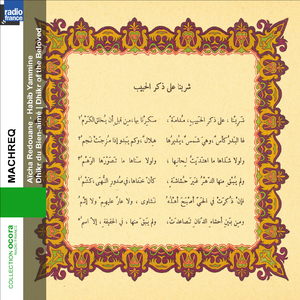 radio france
MACHREQ
Aïcha Redouane - Habib Yammine
Dhikr du Bien-aimé | Dhikr of the Beloved
COLLECTION ocora
RADIO FRANCE
شربنا على ذكر الحبيب
شَرِبْنَا، على ذكرِ الحبيبِ، مُدامَةً، سكِرْنَا بها، من قبلِ أن يُخلقَ الكَرْمُ
لها البدرُ كأسٌ، وهيَ شمسٌ، يُديرُهَا هلالٌ، وكم يبدو إذا مُزِجَتْ نَجمُ
ولولا شذَاها ما اهتدَيتُ لِحانِها، ولولا سَناها ما تصَوّرَها الوَهْمُ
ولم يُبْقِ منها الدّهْرُ غيرَ حُشاشَةٍ، كأنّ خَفاها، في صُدورِ النُّهَى، كَتْمُ
فإن ذُكرَتْ في الحَيّ أصبحَ أهلُهُ نَشاوى، ولا عارٌ عليهمْ ولا إثمُ
ومن بينِ أحشاء الدّنانِ تصاعدتْ، ولم يَبْقَ منها، في الحقيقة، إلا اسمُ